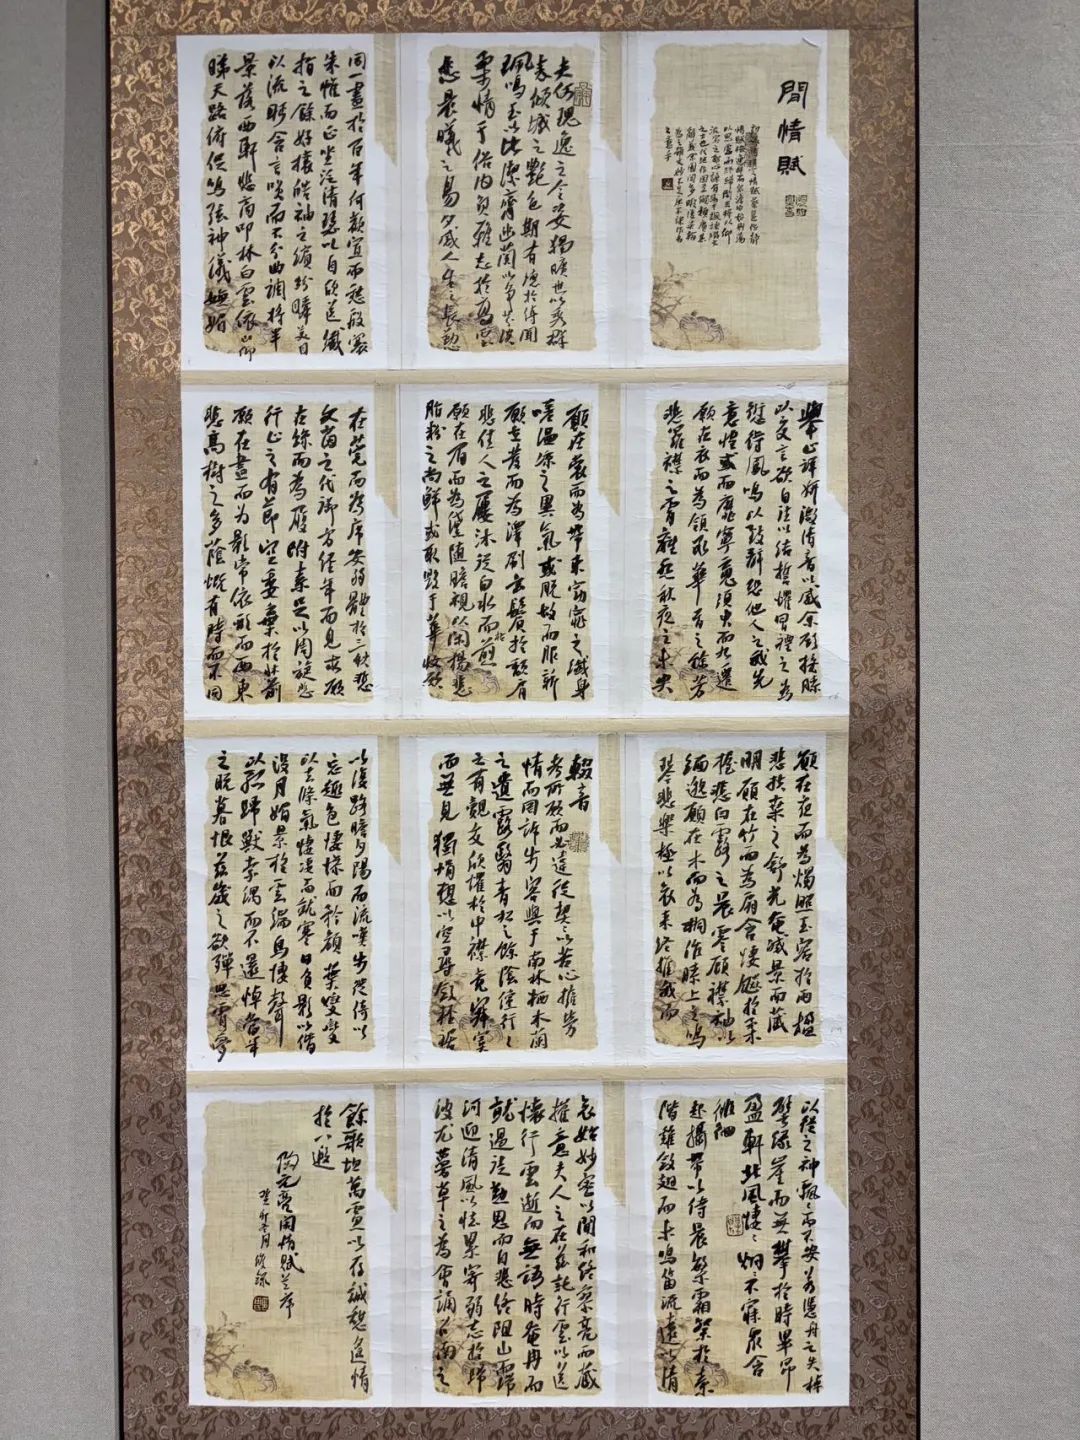 閒情賦
初張衡作定情賦蔡邕作靜
情賦檢逸辭而宗澹泊始則蕩
以思慮而終歸閒正將以抑
流宕之邪心諒有助於諷諫綴文
之士奕代繼作因並觸類廣其
辭義余園閭多暇復染翰
為之雖文妙不足庶不謬作者
之意乎
夫何瑰逸之令姿獨曠世以秀群
表傾城之艷色期有德於傳聞
珮鳴玉以比潔齊幽蘭以爭芬淡
柔情于俗內負雅志於高雲
悲晨曦之易夕感人生之長勤
同一盡於百年何歡寡而愁殷褰
朱帷而正坐泛清瑟以自欣送纖
指之餘好攘皓袖之繽紛瞬美目
以流眄含言笑而不分曲調將半
景落西軒悲商叩林白雲依山仰
睇天路俯促鳴弦神儀嫵媚
舉止詳妍激清音以感余願接膝
以交言欲自往以結誓懼冒禮之為
愆待鳳鳴以致辭恐他人之我先
意惶惑而靡寧魂須臾而九遷
願在衣而為領承華首之餘芳
悲羅襟之宵離怨秋夜之未央
願在裳而為帶束窈窕之纖身
嗟溫涼之異氣或脫故而服新
願在髮而為澤刷玄鬢於頹肩
悲佳人之屢沐從白水而枯煎
願在眉而為黛隨瞻視以閑揚悲
脂粉之尚鮮或取毀于華妝願
在莞而為席安弱體於三秋悲
文茵之代御方經年而見求願
在絲而為履附素足以周旋悲
行止之有節空委棄於牀前
願在晝而為影常依形而西東
悲高樹之多蔭慨有時而不同
願在夜而為燭照玉容於兩楹
悲扶桑之舒光奄滅景而藏
明願在竹而為扇含悽飆於柔
握悲白露之晨零顧襟袖以
緬邈願在木而為桐作膝上之鳴
琴悲樂極以哀來終推我而
輟音
考所願而必違徒契契以苦心擁勞
情而罔訴步容與于南林栖木蘭
之遺露翳青松之餘陰儻行行
之有覿交欣懼於中襟竟寂寞
而無見獨悁想以空尋斂輕裾
以復路瞻夕陽而流嘆步徙倚以
忘趣色悽慘而矜顏葉燮燮
以去條氣悽悽而就寒日負影以偕
沒月媚景於雲端鳥悽聲
以孤歸獸索偶而不還悼當年
之晚暮恨茲歲之欲殫思宵夢
以從之神飄飄而不安若憑舟之失棹
譬緣崖而無攀於時畢昴
盈軒北風悽悽炯炯不寐眾念
徘徊
起攝帶以待晨繁霜粲於素
階雞斂翅而未鳴笛流遠以清
哀始妙密以閒和終寥亮而藏
摧意夫人之在茲託行雲以送
懷行雲逝而無語時奄冉而
就過徒勤思而自悲終阻山帶
河迎清風以怯累寄弱志於歸
波尤蔓草之為會誦召南之
餘歌坦萬慮以存誠憩遙情
於八遐
陶元亮閑情賦並序
癸卯冬月